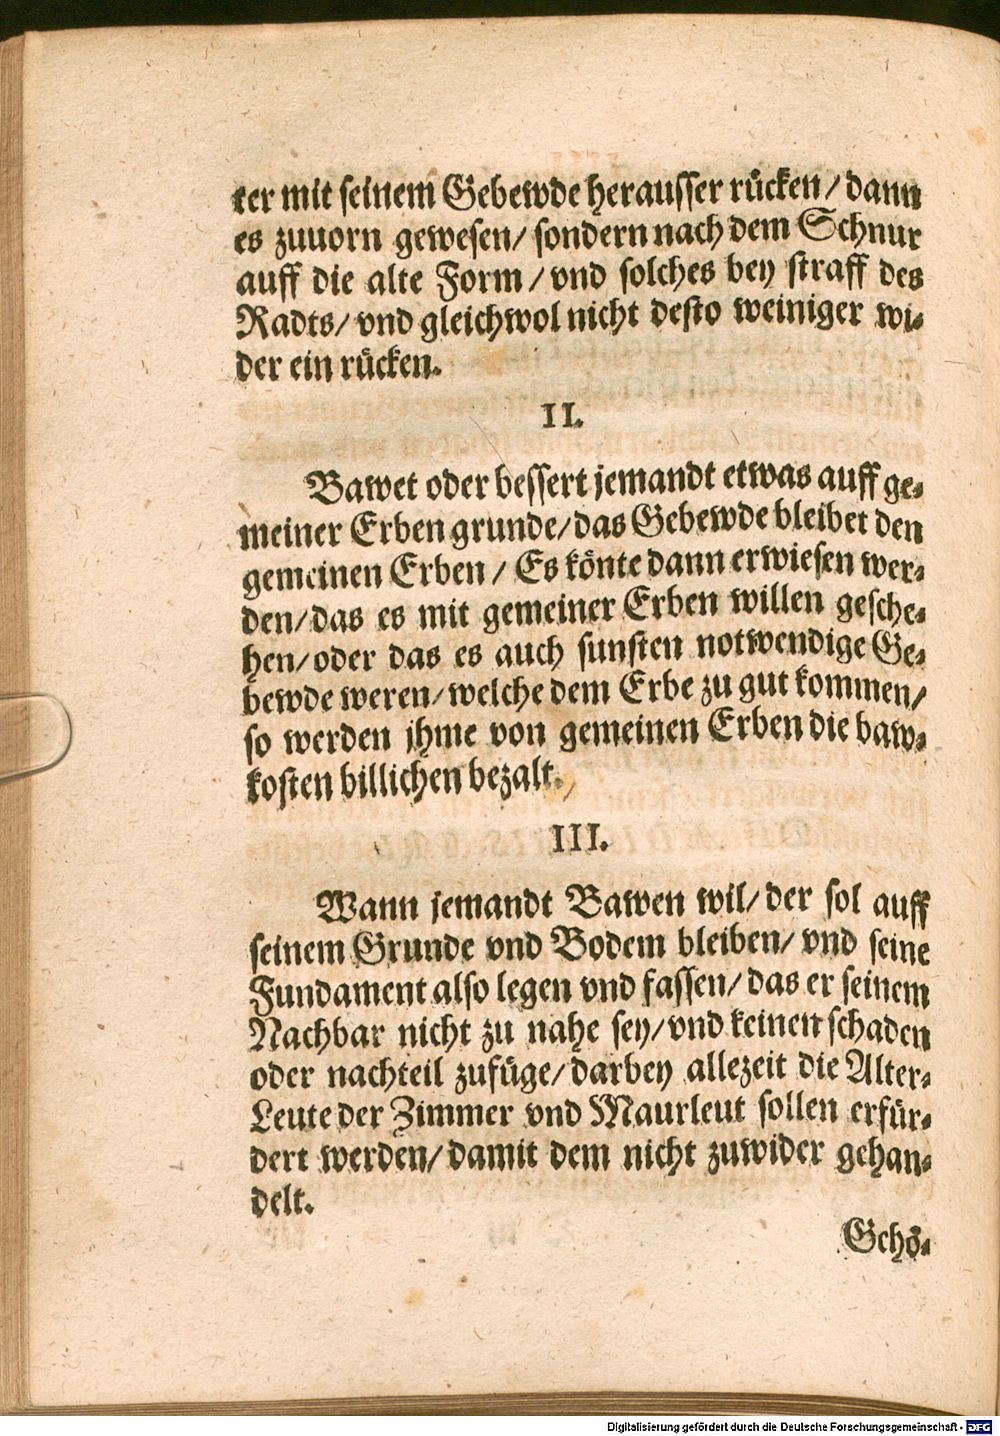 ter mit seinem Gebewde herausser rücken/dann
es zuuorn gewesen/ sondern nach dem Schnur
auff die alte Form/vnd solches bey straff des
Radts/ vnd gleichwol nicht desto weiniger wi-
der ein rücken.
II.
Bawet oder bessert jemandt etwas auff ge-
meiner Erben grunde/das Gebewde bleibet den
gemeinen Erben/ Es könte dann erwiesen wer-
den/das es mit gemeiner Erben willen gesche-
hen/oder das es auch sunsten notwendige Ge-
bewde weren/welche dem Erbe zu gut kommen/
so werden jhme von gemeinen Erben die baw-
kosten billichen bezalt.
III.
Wann jemandt Bawen wil/der sol auff
seinem Grunde vnd Bodem bleiben/ vnd seine
Fundament also legen vnd fassen/das er seinem
Nachbar nicht zu nahe sey/vnd keinen schaden
oder nachteil zufüge/darbey allezeit die Alter-
Leute der Zimmer vnd Maurleut sollen erfür-
dert werden/damit dem nicht zuwider gehan-
delt.
Gehö-
Digitalisierung gefördert durch die Deutsche Forschungsgemeinschaft - DFG